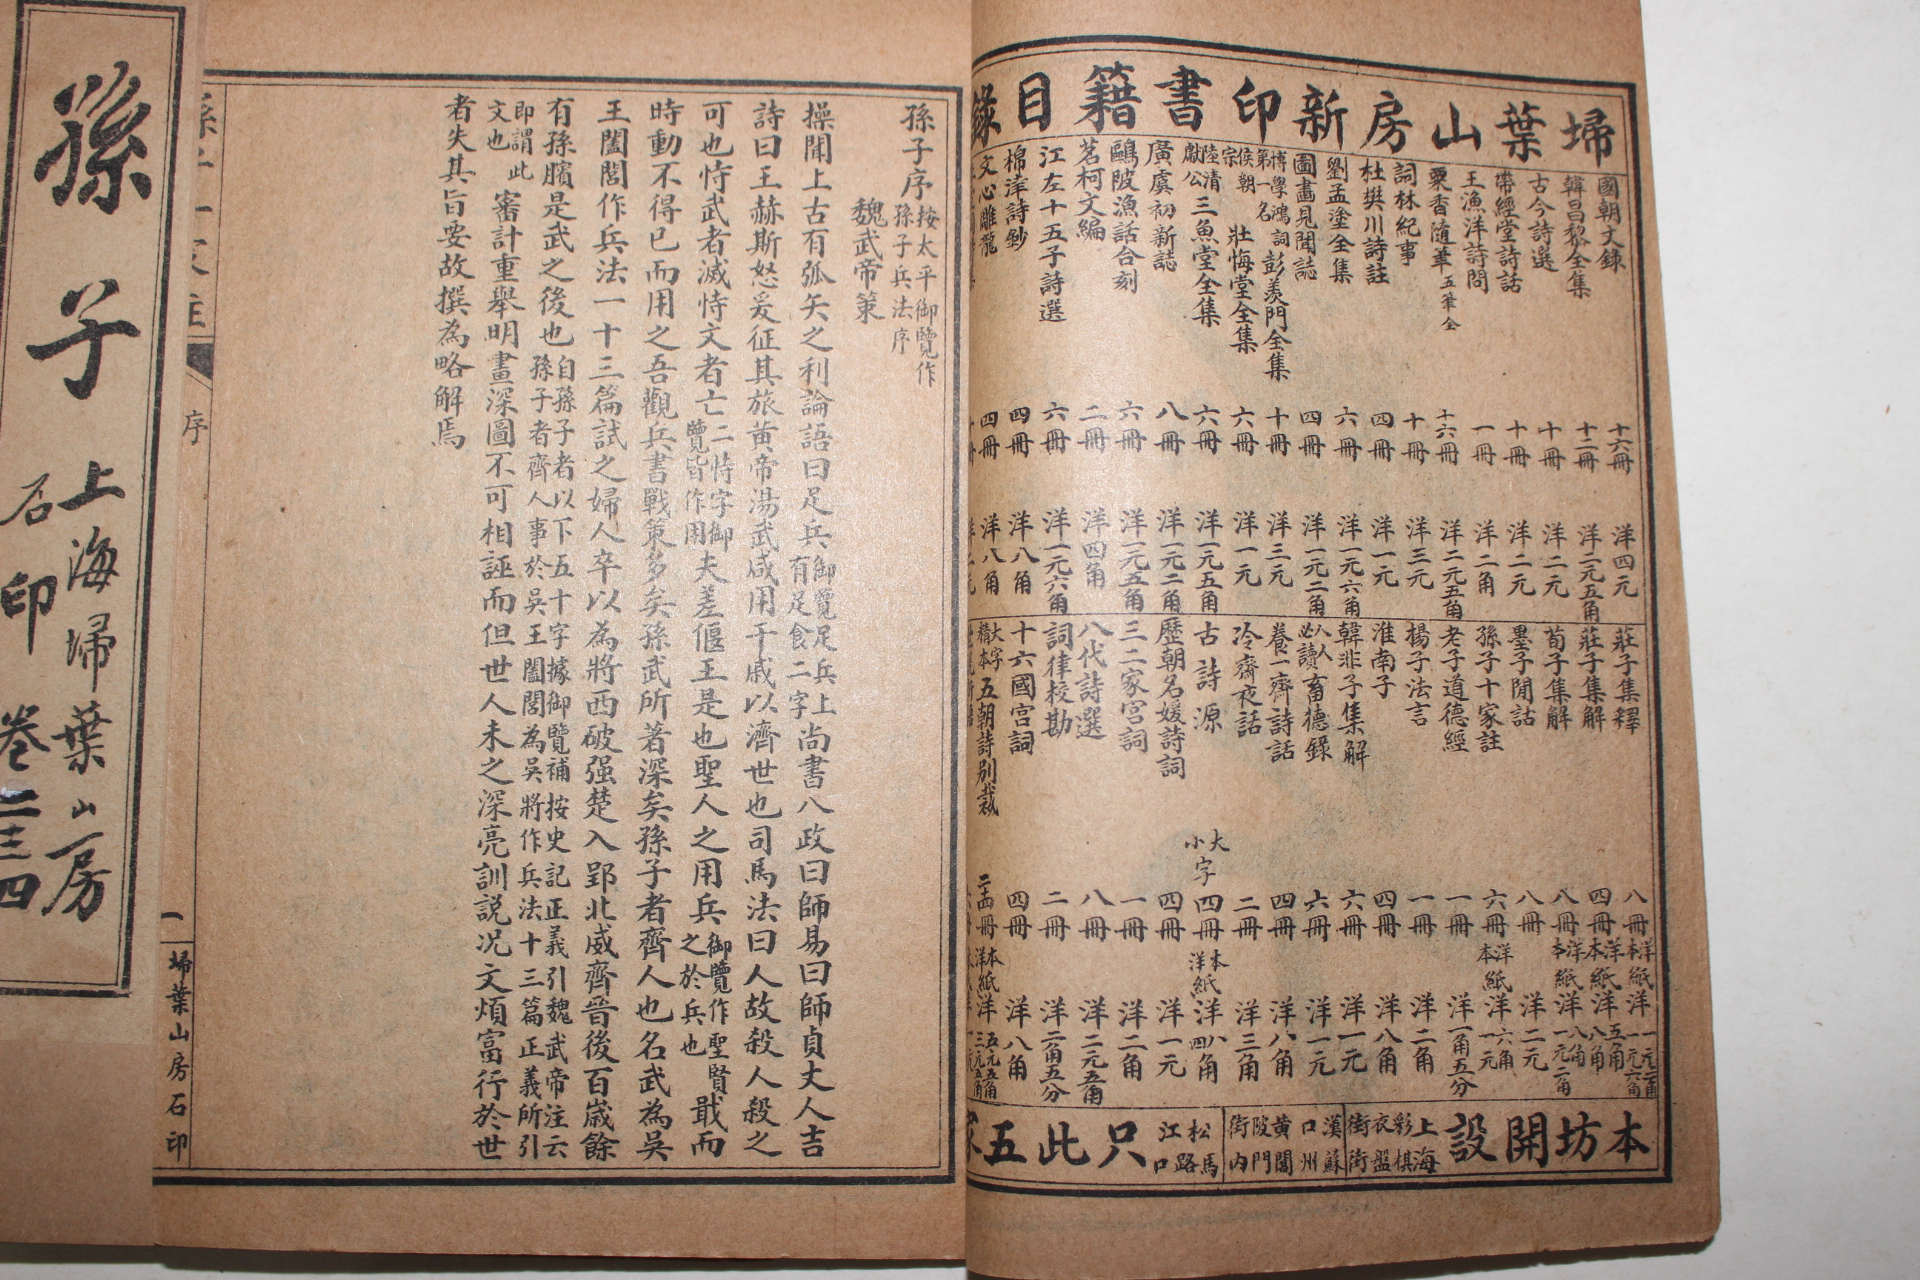 埽葉山房新印書籍目錄
國朝文錄 十六冊 洋四元
韓昌黎全集 十二冊 洋二元五角
古今詩選 十冊 洋二元
帶經堂詩話 十冊 洋二元
王漁洋詩問 一冊 洋二角
粟香隨筆 五筆全 十六冊 洋二元五角
詞林紀事 十冊 洋三元
杜樊川詩註 四冊 洋一元
劉孟塗全集 六冊 洋一元六角
圖畫見聞誌 四冊 洋一元二角
博學鴻詞第一名 彭羨門全集 十冊 洋三元
侯朝宗 壯悔堂全集 六冊 洋一元
陸清獻公 三魚堂全集 六冊 洋一元五角
廣虞初新誌 八冊 洋一元二角
鷗陂漁話合刻 六冊 洋一元五角
茗柯文編 二冊 洋四角
江左十五子詩選 六冊 洋一元六角
棉津詩鈔 四冊 洋八角
文心雕龍 四冊 洋八角
莊子集釋 八冊 洋紙本紙 洋一元二角一元六角
莊子集解 四冊 洋紙本紙 洋五角八角
荀子集解 八冊 洋紙本紙 洋八角一元二角
墨子閒詁 八冊 洋二元
孫子十家註 六冊 洋紙本紙 洋六角一元
老子道德經 一冊 洋一角五分
揚子法言 一冊 洋二角
淮南子 四冊 洋八角
韓非子集解 六冊 洋一元
人人必讀 畜德錄 六冊 洋一元
養一齋詩話 四冊 洋八角
冷齋夜話 二冊 洋三角
古詩源 大小字 四冊 本紙洋紙 洋八角四角
歷朝名媛詩詞 四冊 洋一元
三家宮詞 一冊 洋二角
八代詩選 八冊 洋二元五角
詞律校勘 二冊 洋二角五分
十六國宮詞 四冊 洋八角
大字精本 五朝詩別裁
本坊開設 上海彩衣街棋盤街 漢口 蘇州黃陂街閶門內 松江馬路口 只此五家
孫子序 按太平御覽作孫子兵法序
魏武帝策
操聞上古有弧矢之利論語曰足兵 御覽足兵上有足食二字 尚書八政曰師易曰師貞丈人吉
詩曰王赫斯怒爰征其旅黃帝湯武咸用干戚以濟世也司馬法曰人故殺人殺之
可也恃武者滅恃文者亡 二恃字御覽皆作用 夫差偃王是也聖人之用兵 御覽作聖賢之於兵也 戢而
時動不得已而用之吾觀兵書戰策多矣孫武所著深矣孫子者齊人也名武為吳
王闔閭作兵法一十三篇試之婦人卒以為將西破强楚入郢北威齊晉後百歲餘
有孫臏是武之後也 自孫子者以下五十字據御覽補按史記正義引魏武帝注云孫子者齊人事於吳王闔閭為吳將作兵法十三篇正義所引
即謂此文也 審計重舉明畫深圖不可相誣而但世人未之深亮訓說況文煩富行於世
者失其旨要故撰為略解焉
序
一
埽葉山房石印
孫子
上海埽葉山房
石印
卷二三四